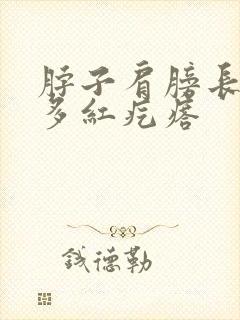 脖子肩膀長
多紅疙瘩
錢德勒